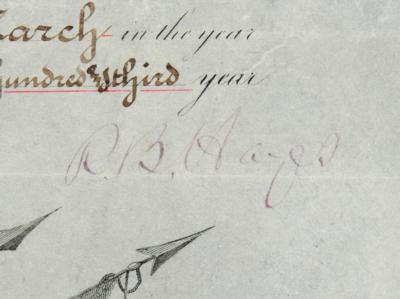 March in the year
hundred & third year
R. B. Hayes